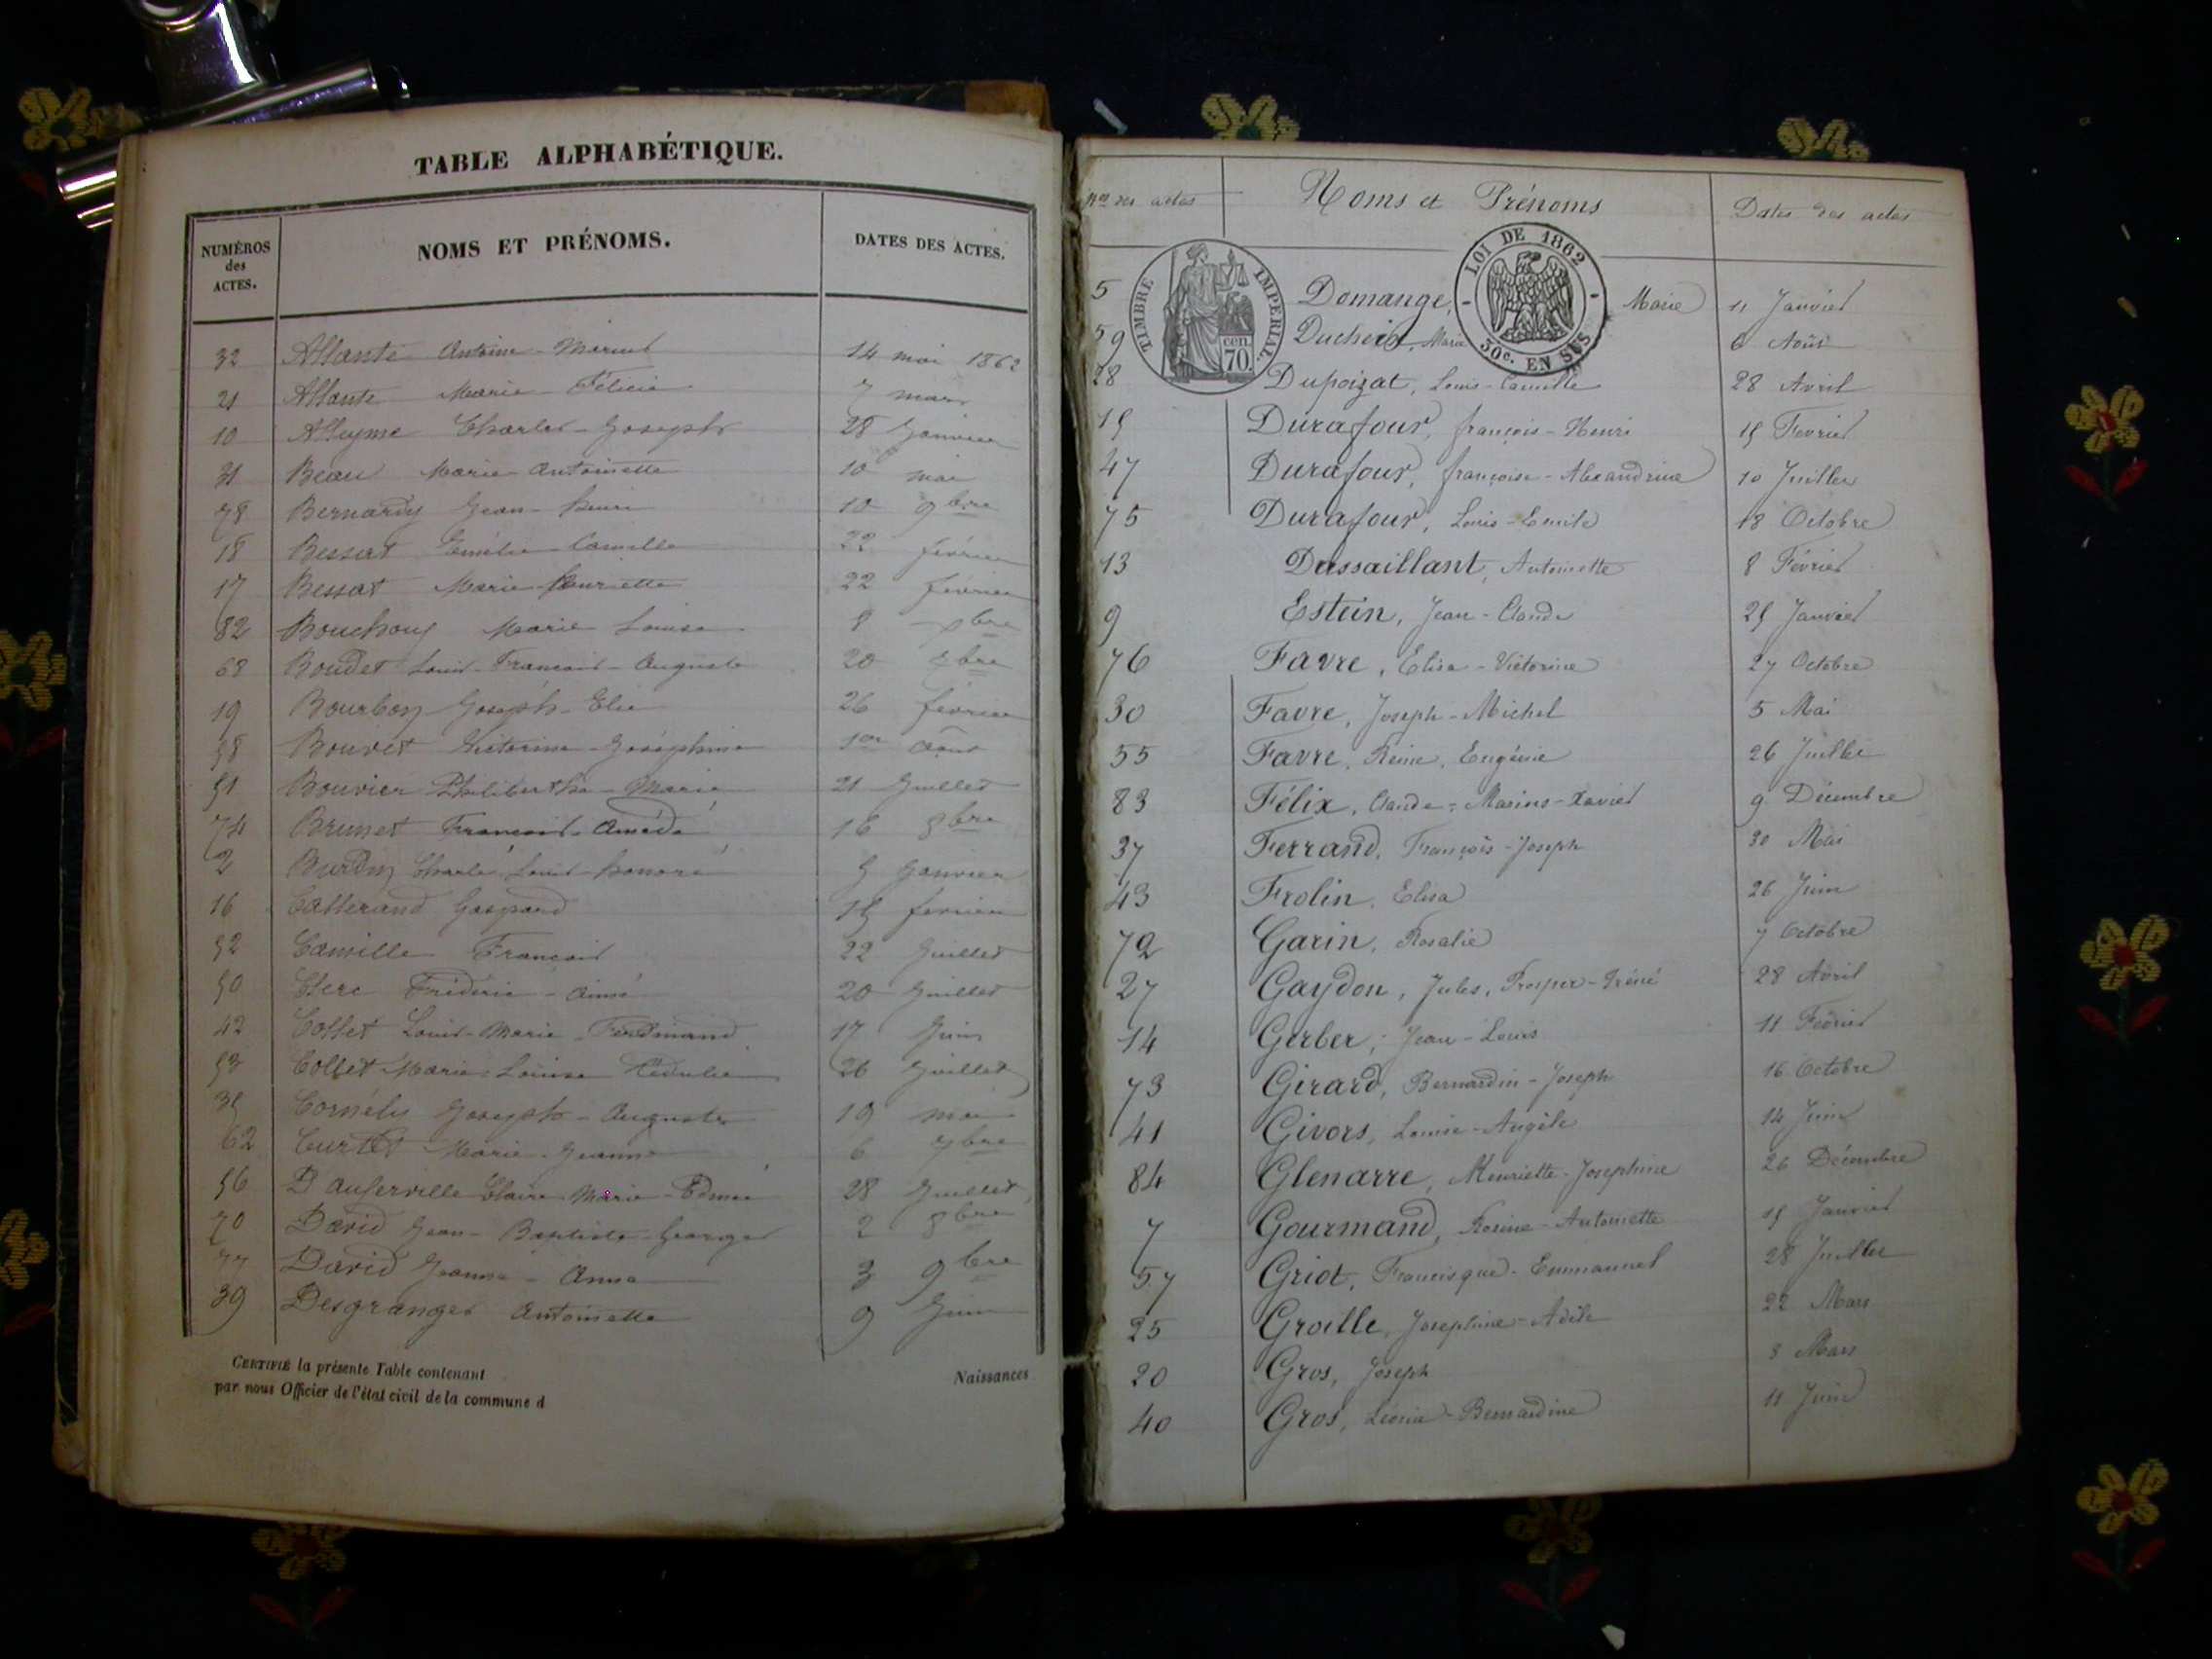 TABLE ALPHABÉTIQUE.
NUMÉROS des ACTES. NOMS ET PRÉNOMS. DATES DES ACTES.
32 Allante Antoine-Marius 14 mai 1862
21 Allante Marie Félicie 7 mars
10 Alleyme Charles-Joseph 28 Janvier
31 Beau Marie Antoinette 10 mai
78 Bernardy Jean-henri 10 9bre
18 Bessat Emélie-Camille 22 février
17 Bessat Marie-henriette 22 février
82 Bouchouy Marie Louise 8 xbre
68 Boudet Louis-François-Auguste 20 7bre
19 Bourbon Joseph-Elie 26 février
58 Bouvet Victorine-Joséphine 1er Aout
51 Bouvier Philibertha-Marie 21 Juillet
74 Brunet François-Amédé 16 8bre
2 Burdin Charle Louis-honoré 5 Janvier
16 Gaspard 15 février
52 Camille François 22 Juillet
50 Clerc Fréderic-Aimé 20 Juillet
42 Collet Louis-Marie-Ferdinand 17 Juin
53 Collet Marie-Louise 26 Juillet
35 Cornély Joseph-Auguste 19 mai
62 Curtet Marie-Jeanne 6 7bre
56 D'auferville Claire Marie-Edmée 28 Juillet
70 David Jean-Baptiste-Georges 2 8bre
77 David Jeanne-Anna 3 9bre
39 Desgranges Antoinette 9 Juin
CERTIFIÉ la présente Table contenant Naissances
par nous Officier de l'état civil de la commune d
Nos des actes Noms et Prénoms Dates des actes
TIMBRE IMPÉRIAL. cen. 70.
LOI DE 1862 30c. EN SUS
5 Domange, Marie 11 Janvier
59 Marie 6 Août
28 Dupoizat, Louis-Camille 28 Avril
15 Durafour, françois-Henri 15 Fevrier
47 Durafour, françoise-Alexandrine 10 Juillet
75 Durafour, Louis-Emile 18 Octobre
13 Dussaillant, Antoinette 8 Février
9 Estein, Jean-Claude 25 Janvier
76 Favre, Elisa-Victorine 27 Octobre
30 Favre, Joseph-Michel 5 Mai
55 Favre, Reine, Eugénie 26 Juillet
83 Félix, Claude-Marius-Xavier 9 Décembre
37 Ferrand, François-Joseph 30 Mai
43 Frolin, Elisa 26 Juin
72 Garin, Rosalie 7 Octobre
27 Gaydon, Jules, Prosper-Iréné 28 Avril
14 Gerber, Jean-Louis 11 Février
73 Girard, Bernardin-Joseph 16 Octobre
41 Givors, Louise-Angèle 14 Juin
84 Glenarre, Henriette-Josephine 26 Décembre
7 Gourmand, Rosine-Antoinette 15 Janvier
57 Griot, Francisque-Emmanuel 28 Juillet
25 Groille, Josephine-Adèle 22 Mars
20 Gros, Joseph 3 Mars
40 Gros, Léonie-Bernardine 11 Juin